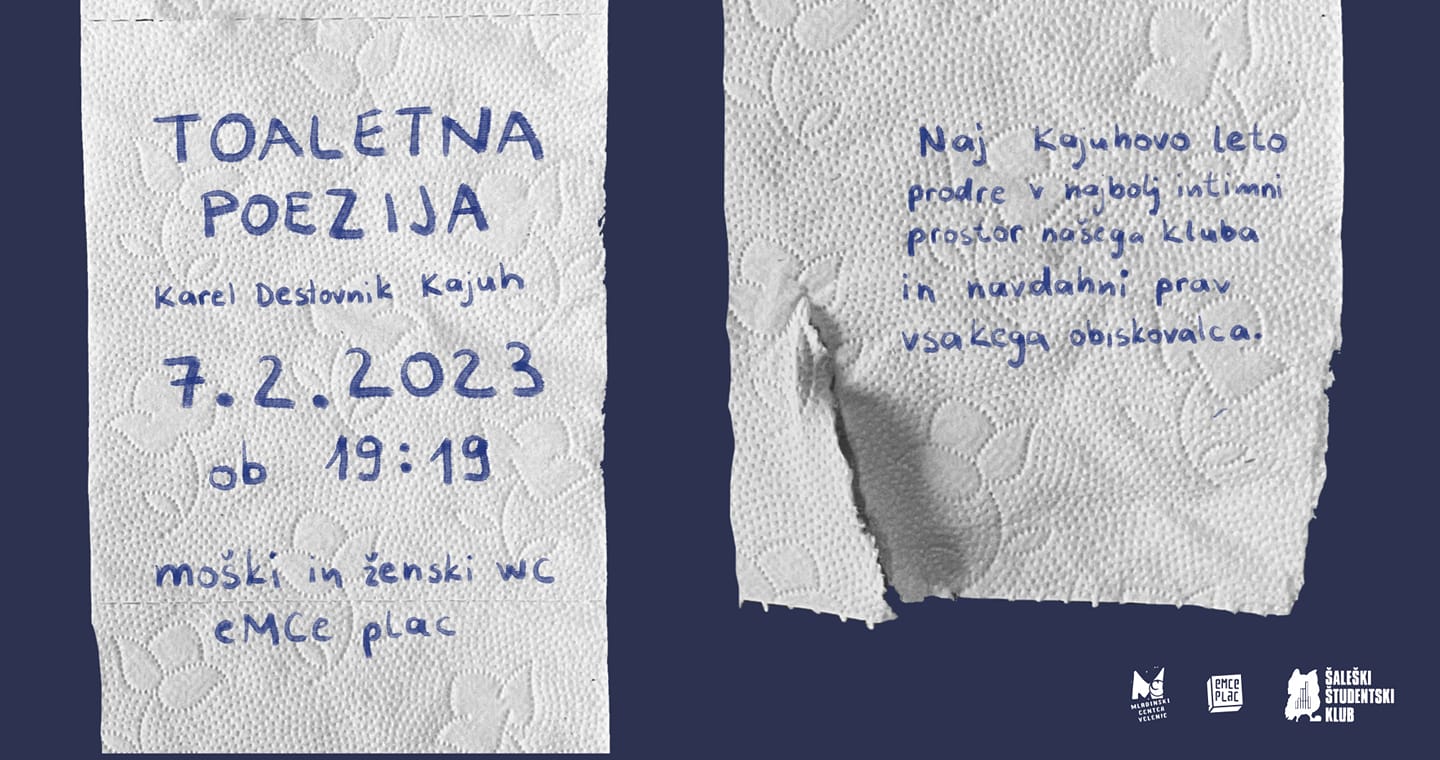 TOALETNA
POEZIJA
Karel Destovnik Kajuh
7.2.2023
ob 19:19
moški in ženski WC
eMCe plac
Naj Kajuhovo leto
prodre v najbolj intimni
prostor našega kluba
in navdahni prav
vsakega obiskovalca.
MLADINSKI
CENTER
VELENJE
eMCe
PLAC
ŠALEŠKI
ŠTUDENTSKI
KLUB